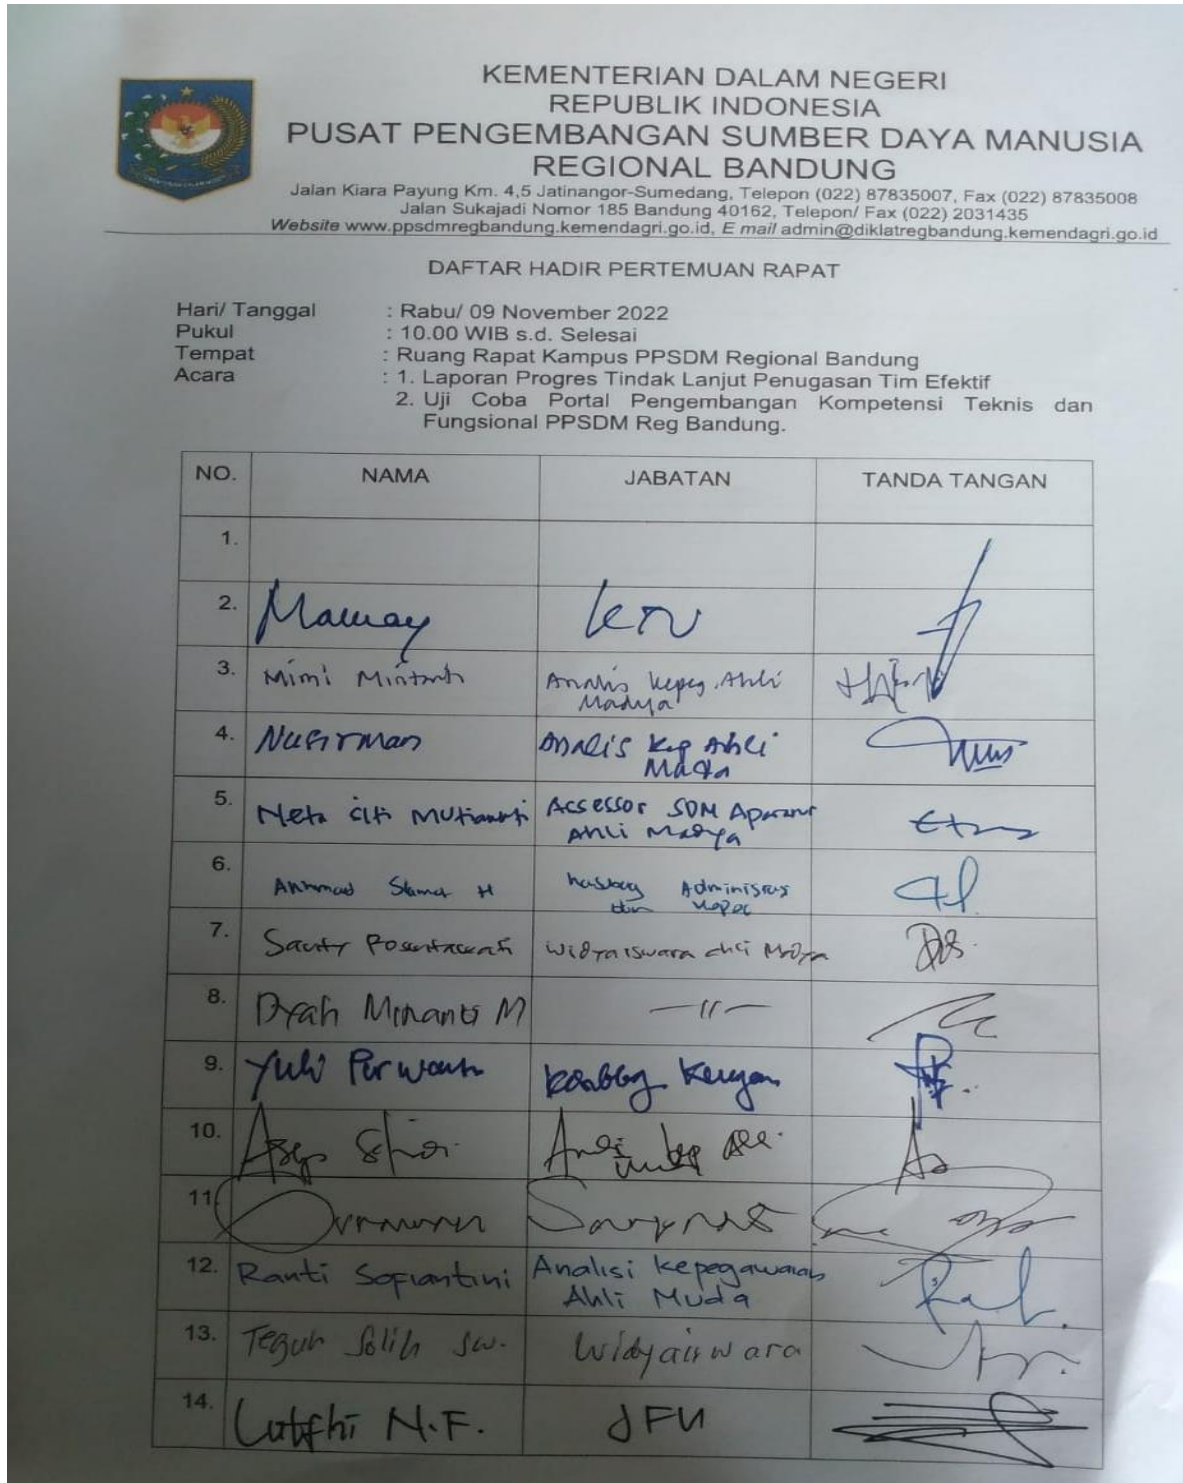 KEMENTERIAN DALAM NEGERI
REPUBLIK INDONESIA
PUSAT PENGEMBANGAN SUMBER DAYA MANUSIA
REGIONAL BANDUNG
Jalan Kiara Payung Km. 4,5 Jatinangor-Sumedang, Telepon (022) 87835007, Fax (022) 87835008
Jalan Sukajadi Nomor 185 Bandung 40162, Telepon/ Fax (022) 2031435
Website www.ppsdmregbandung.kemendagri.go.id, E mail admin@diklatregbandung.kemendagri.go.id
DAFTAR HADIR PERTEMUAN RAPAT
Hari/ Tanggal : Rabu/ 09 November 2022
Pukul : 10.00 WIB s.d. Selesai
Tempat : Ruang Rapat Kampus PPSDM Regional Bandung
Acara : 1. Laporan Progres Tindak Lanjut Penugasan Tim Efektif
2. Uji Coba Portal Pengembangan Kompetensi Teknis dan
Fungsional PPSDM Reg Bandung.
NO. NAMA JABATAN TANDA TANGAN
1.
2. KTU
3. Mimi Analis Kepeg. Ahli
Madya
4. Nusirman Analis Kep Ahli
Madya
5. Neta Siti Assessor SDM Aparatur
Ahli Madya
6. Slamet H Administrasi
7. Widyaiswara ahli Madya
8. Dyah Minanti M —11—
9. Yuli Purwanti
10. Asep
11.
12. Ranti Sofiantini Analisi Kepegawaian
Ahli Muda
13. Teguh Solih Sw. Widyaiswara
14. Lutfhi N.F. JFU